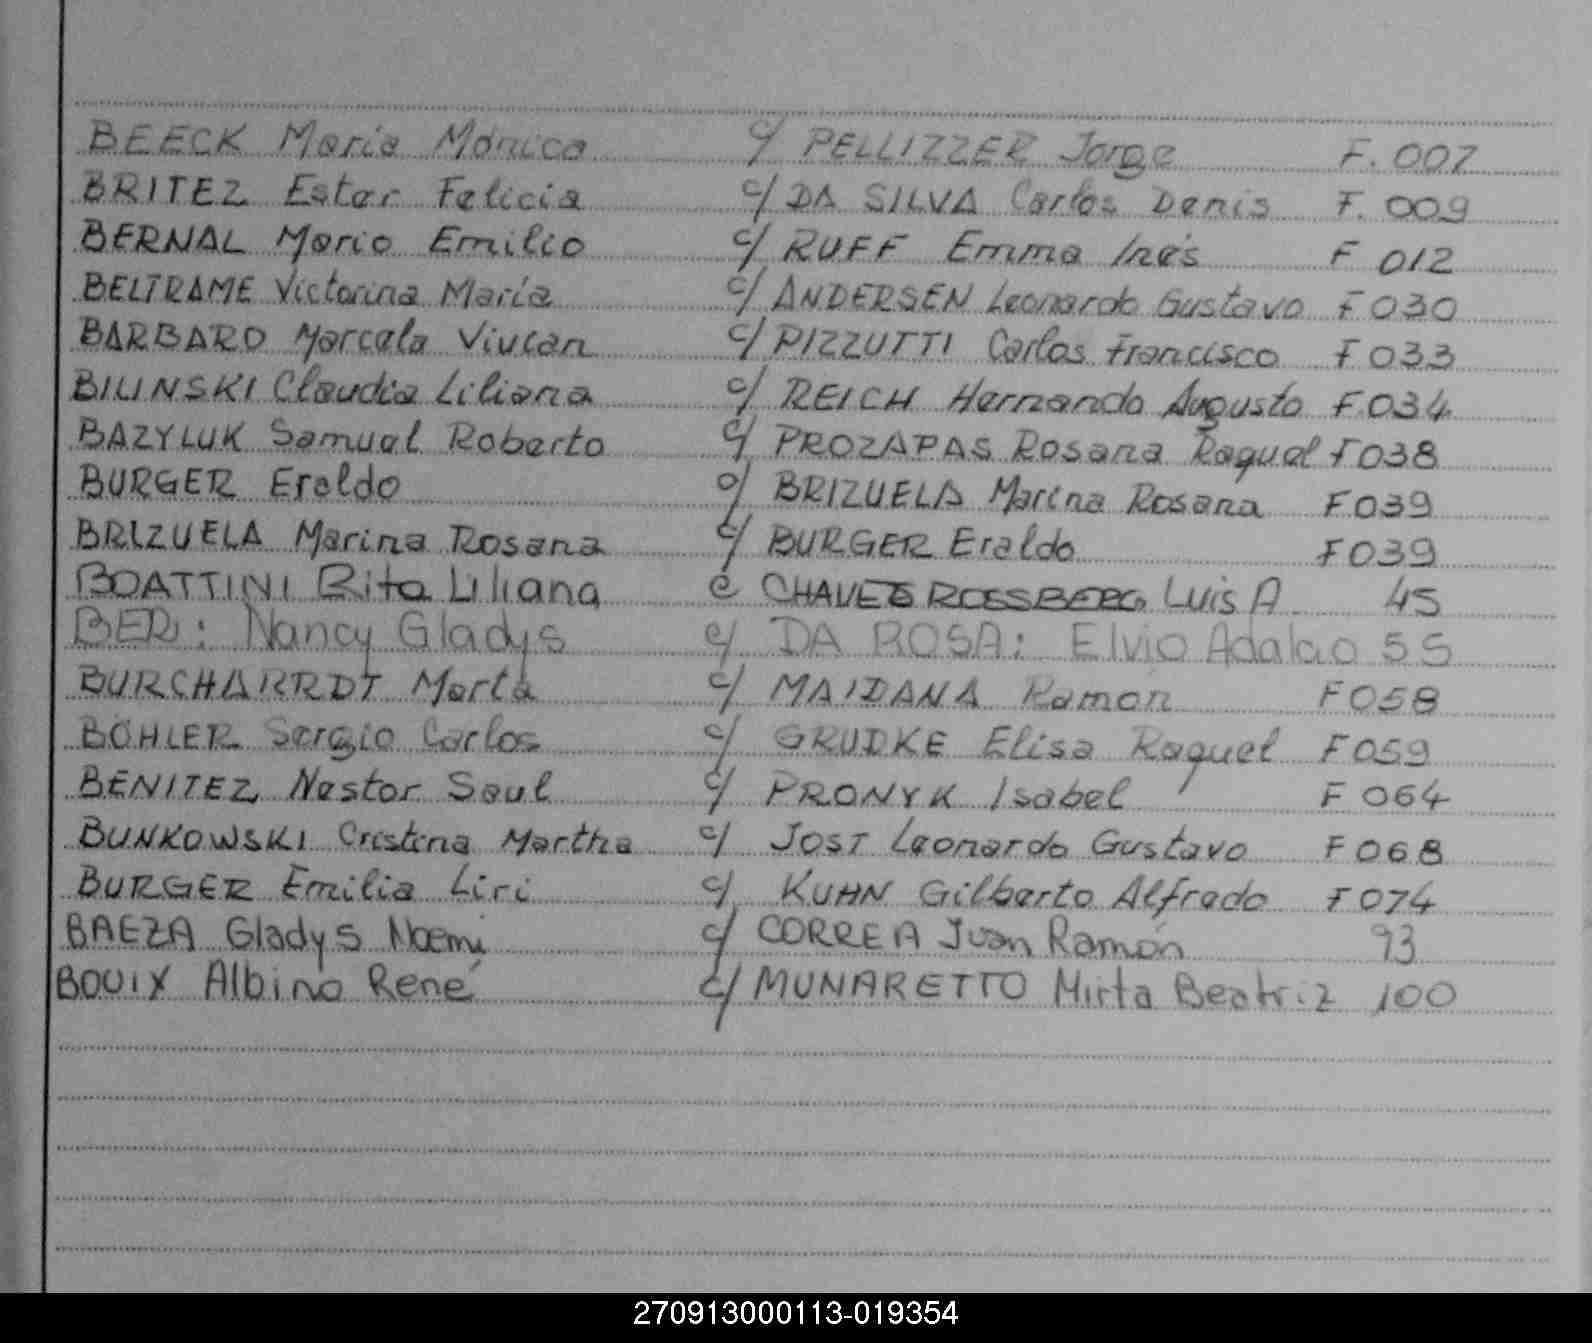 BEECK Maria Mónica c/ PELLIZZER Jorge F. 007
BRITEZ Ester Felicia c/ DA SILVA Carlos Denis F. 009
BERNAL Mario Emilio c/ RUFF Emma Inés F 012
BELTRAME Victorina María c/ ANDERSEN Leonardo Gustavo F 030
BARBARO Marcela Vivian c/ PIZZUTTI Carlos Francisco F 033
BILINSKI Claudia Liliana c/ REICH Hernando Augusto F 034
BAZYLUK Samuel Roberto c/ PROZAPAS Rosana Raquel F 038
BURGER Eraldo c/ BRIZUELA Marina Rosana F 039
BRIZUELA Marina Rosana c/ BURGER Eraldo F 039
BOATTINI Rita Liliana c CHAVES ROSSBERG Luis A 45
BER: Nancy Gladys c/ DA ROSA: Elvio 55
BURCHARRDT Marta c/ MAIDANA Ramon F 058
BOHLER Sergio Carlos c/ GRUDKE Elisa Raquel F 059
BENITEZ Nestor Saul c/ PRONYK Isabel F 064
BUNKOWSKI Cristina Martha c/ JOST Leonardo Gustavo F 068
BURGER Emilia Liri c/ KUHN Gilberto Alfredo F 074
BAEZA Gladys Noemi c/ CORREA Juan Ramón 93
BOUIX Albino René c/ MUNARETTO Mirta Beatriz 100
270913000113-019354